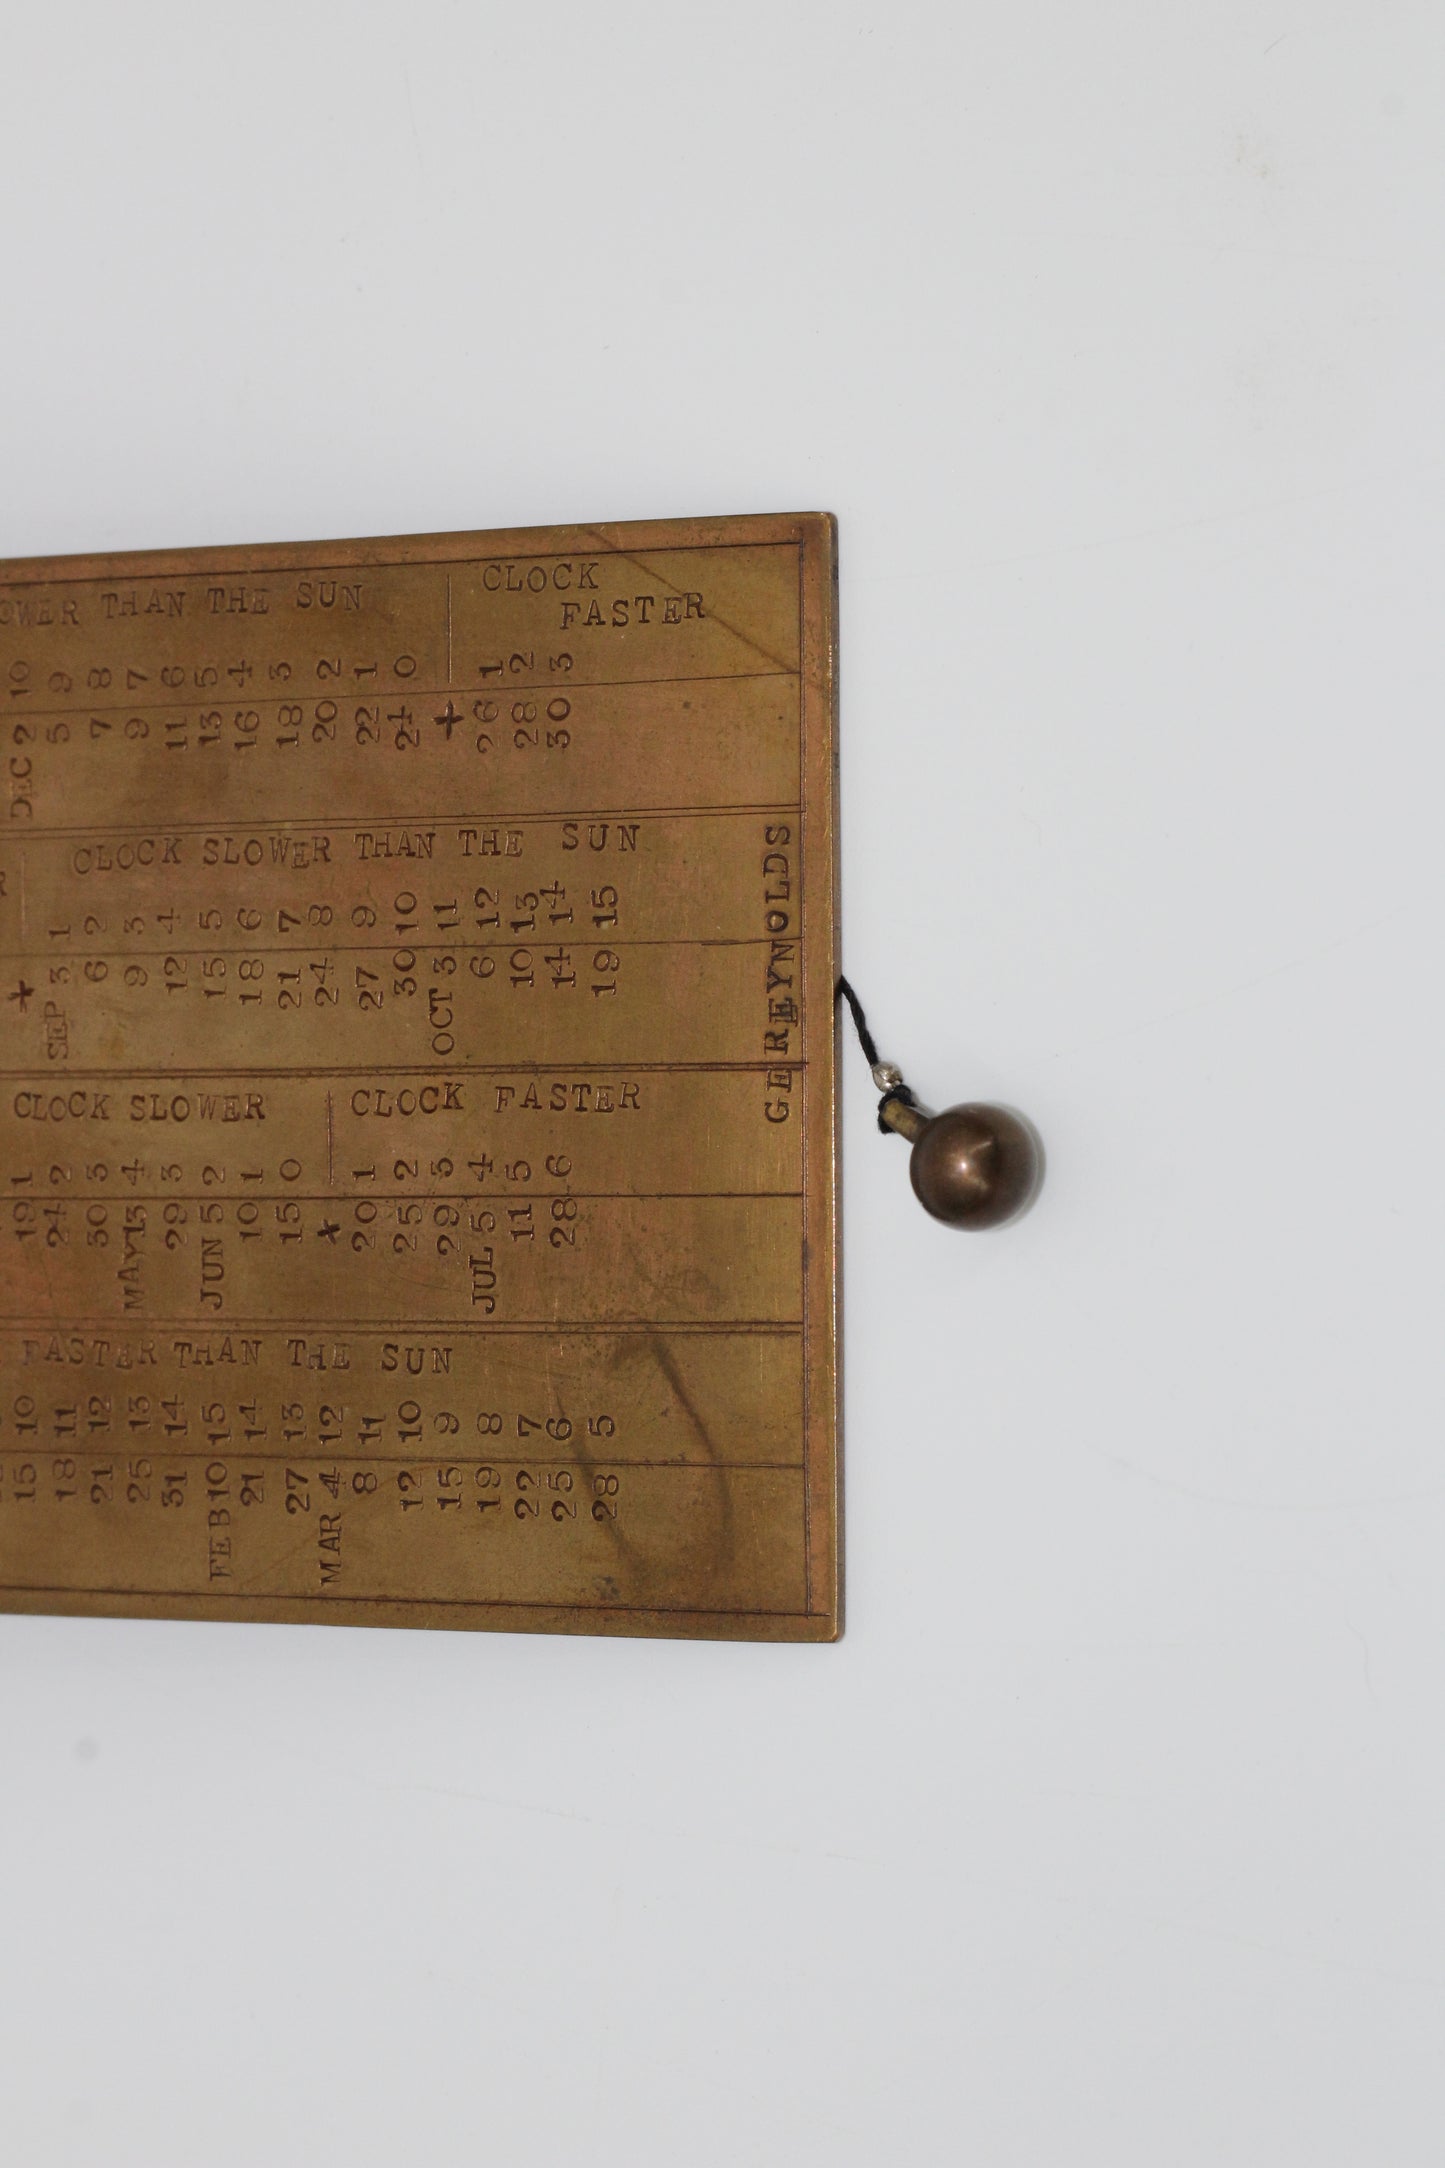 FASTER THAN THE SUN
15 10
18 11
21 12
25 13
31 14
FEB 10 15
21 14
27 13
MAR 4 12
8 11
12 10
15 9
19 8
22 7
25 6
28 5
CLOCK SLOWER
19 1
24 2
30 3
MAY 13 4
29 3
JUN 5 2
10 1
15 0
+
CLOCK FASTER
20 1
25 2
29 3
JUL 5 4
11 5
28 6
+
CLOCK SLOWER THAN THE SUN
SEP 3 1
6 2
9 3
12 4
15 5
18 6
21 7
24 8
27 9
30 10
OCT 3 11
6 12
10 13
14 14
19 15
THAN THE SUN
DEC 2 10
5 9
7 8
9 7
11 6
13 5
16 4
18 3
20 2
22 1
24 0
+
CLOCK
FASTER
26 1
28 2
30 3
G E REYNOLDS